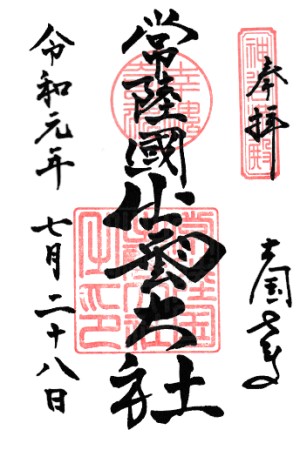 奉拝
大国さま
常陸國出雲大社
令和元年 七月二十八日